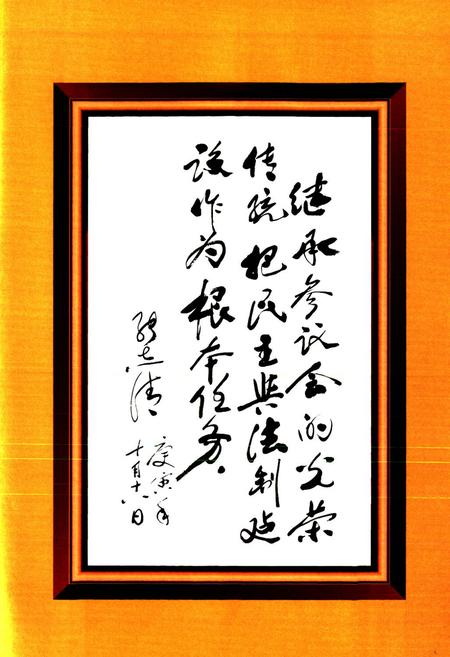 继承参议会的光荣
传统把民主与法制建
设作为根本任务。
庚寅年
十月十六日